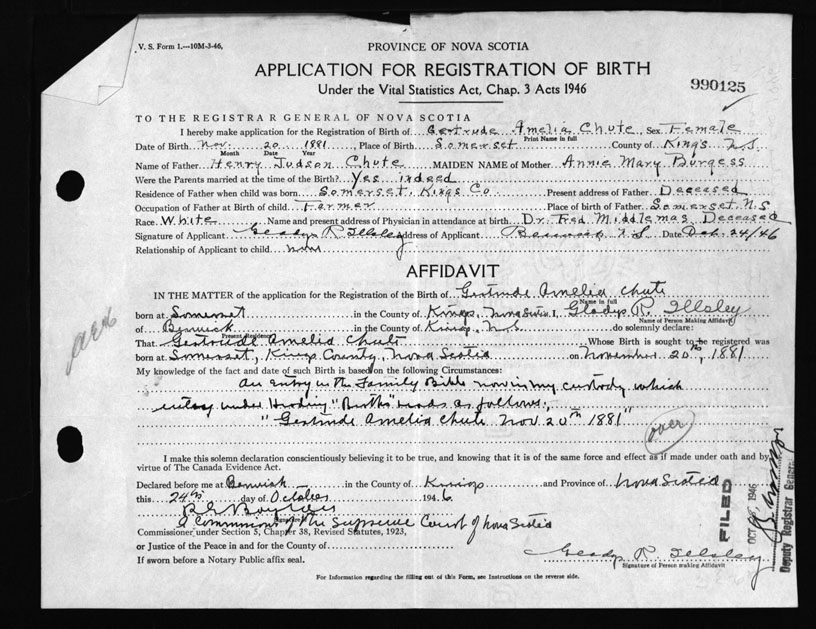 V. S. Form 1.—10M-3-46,
PROVINCE OF NOVA SCOTIA
APPLICATION FOR REGISTRATION OF BIRTH
Under the Vital Statistics Act, Chap. 3 Acts 1946
990125
TO THE REGISTRAR GENERAL OF NOVA SCOTIA
I hereby make application for the Registration of Birth of Gertrude Amelia Chute, Sex Female
Print Name in full
Date of Birth Nov. 20 1881, Place of Birth Somerset County of King's N.S.
Month Date Year
Name of Father Henry Judson Chute MAIDEN NAME of Mother Annie Mary Burgess
Were the Parents married at the time of the Birth? Yes indeed
Residence of Father when child was born Somerset, Kings Co Present address of Father Deceased
Occupation of Father at Birth of child Farmer Place of birth of Father Somerset N.S
Race White Name and present address of Physician in attendance at birth Dr. Fred Middlemas, Deceased
Signature of Applicant Gladys R Illsley address of Applicant Berwick N.S Date Oct. 24/46
Relationship of Applicant to child none
AFFIDAVIT
IN THE MATTER of the application for the Registration of the Birth of Gertrude Amelia Chute
Name in full
born at Somerset in the County of Kings, Nova Scotia I, Gladys R. Illsley
Name of Person Making Affidavit
of Berwick in the County of Kings, N.S. do solemnly declare:
Present Residence
That Gertrude Amelia Chute Whose Birth is sought to be registered was
born at Somerset, Kings County, Nova Scotia on November 20th, 1881
My knowledge of the fact and date of such Birth is based on the following Circumstances:
An entry in the Family Bible now in my custody which
entry under Heading "Births" reads as follows:
"Gertrude Amelia Chute Nov 20th 1881"
over
I make this solemn declaration conscientiously believing it to be true, and knowing that it is of the same force and effect as if made under oath and by
virtue of The Canada Evidence Act.
Declared before me at Berwick in the County of Kings and Province of Nova Scotia
this 24th day of October 1946
A Commissioner of the Supreme Court of Nova Scotia
Commissioner under Section 5, Chapter 38, Revised Statutes, 1923,
or Justice of the Peace in and for the County of
If sworn before a Notary Public affix seal.
Gladys R. Illsley
Signature of Person making Affidavit
For Information regarding the filling out of this Form, see Instructions on the reverse side.
FILED
OCT 1946
Deputy Registrar General